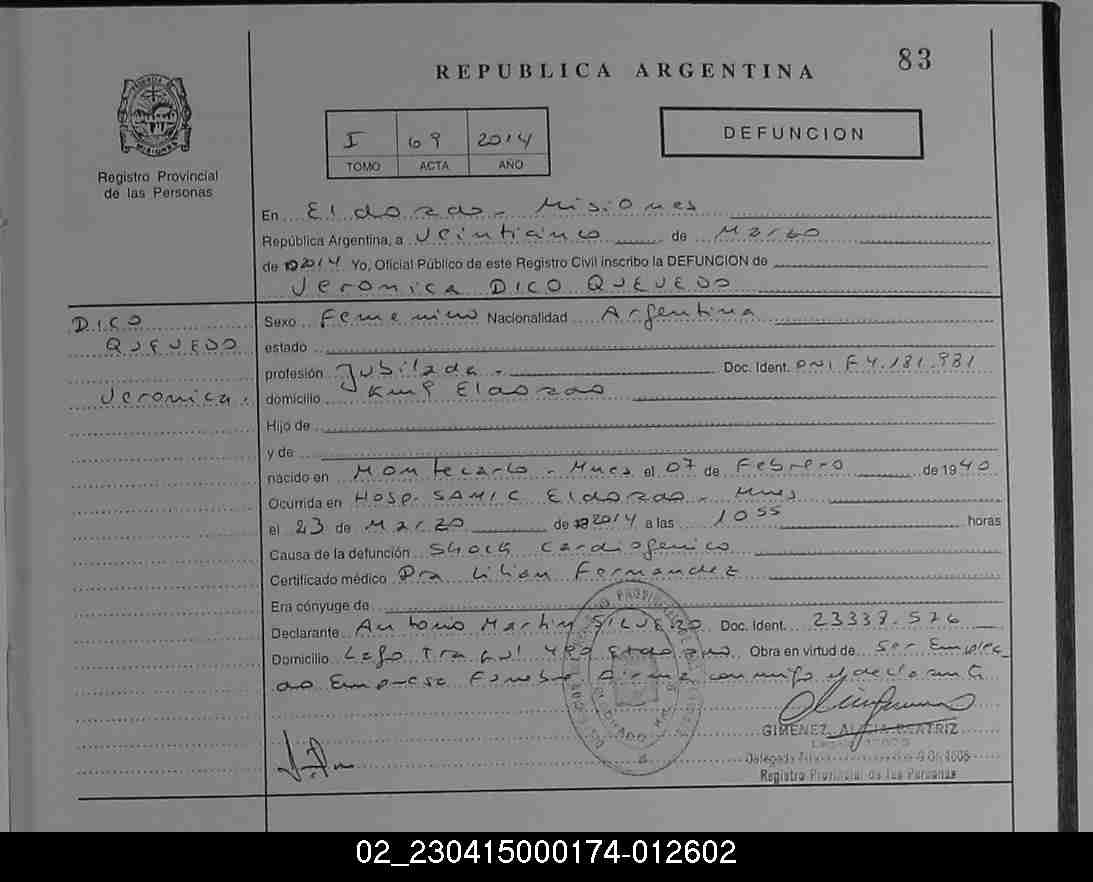 83
REPUBLICA ARGENTINA
I 69 2014
TOMO ACTA AÑO
DEFUNCION
Registro Provincial
de las Personas
En Eldorado - Misiones
República Argentina, a Veinticinco de Marzo
de 2014 Yo, Oficial Público de este Registro Civil inscribo la DEFUNCION de
Veronica DICO QUEVEDO
DICO
QUEVEDO
Veronica.
Sexo Femenino Nacionalidad Argentina
estado
profesión Jubilada - Doc. Ident. DNI F 4.181.981
domicilio Km 9 Eldorado
Hijo de
y de
nacido en Montecarlo - Mnes el 07 de Febrero de 1940
Ocurrida en Hosp. SAMIC Eldorado - Mnes
el 23 de Marzo de 2014 a las 10 55 horas
Causa de la defunción Shock Cardiogenico
Certificado médico Dra Lilian Fernandez
Era cónyuge de
Declarante Antonio Martin SILVERO Doc. Ident. 23337.576
Domicilio Eldorado Obra en virtud de Ser Emplea
do Empresa Funebre Firma conmigo el declarante
GIMENEZ, ALICIA BEATRIZ
Registro Provincial de las Personas
02_230415000174-012602